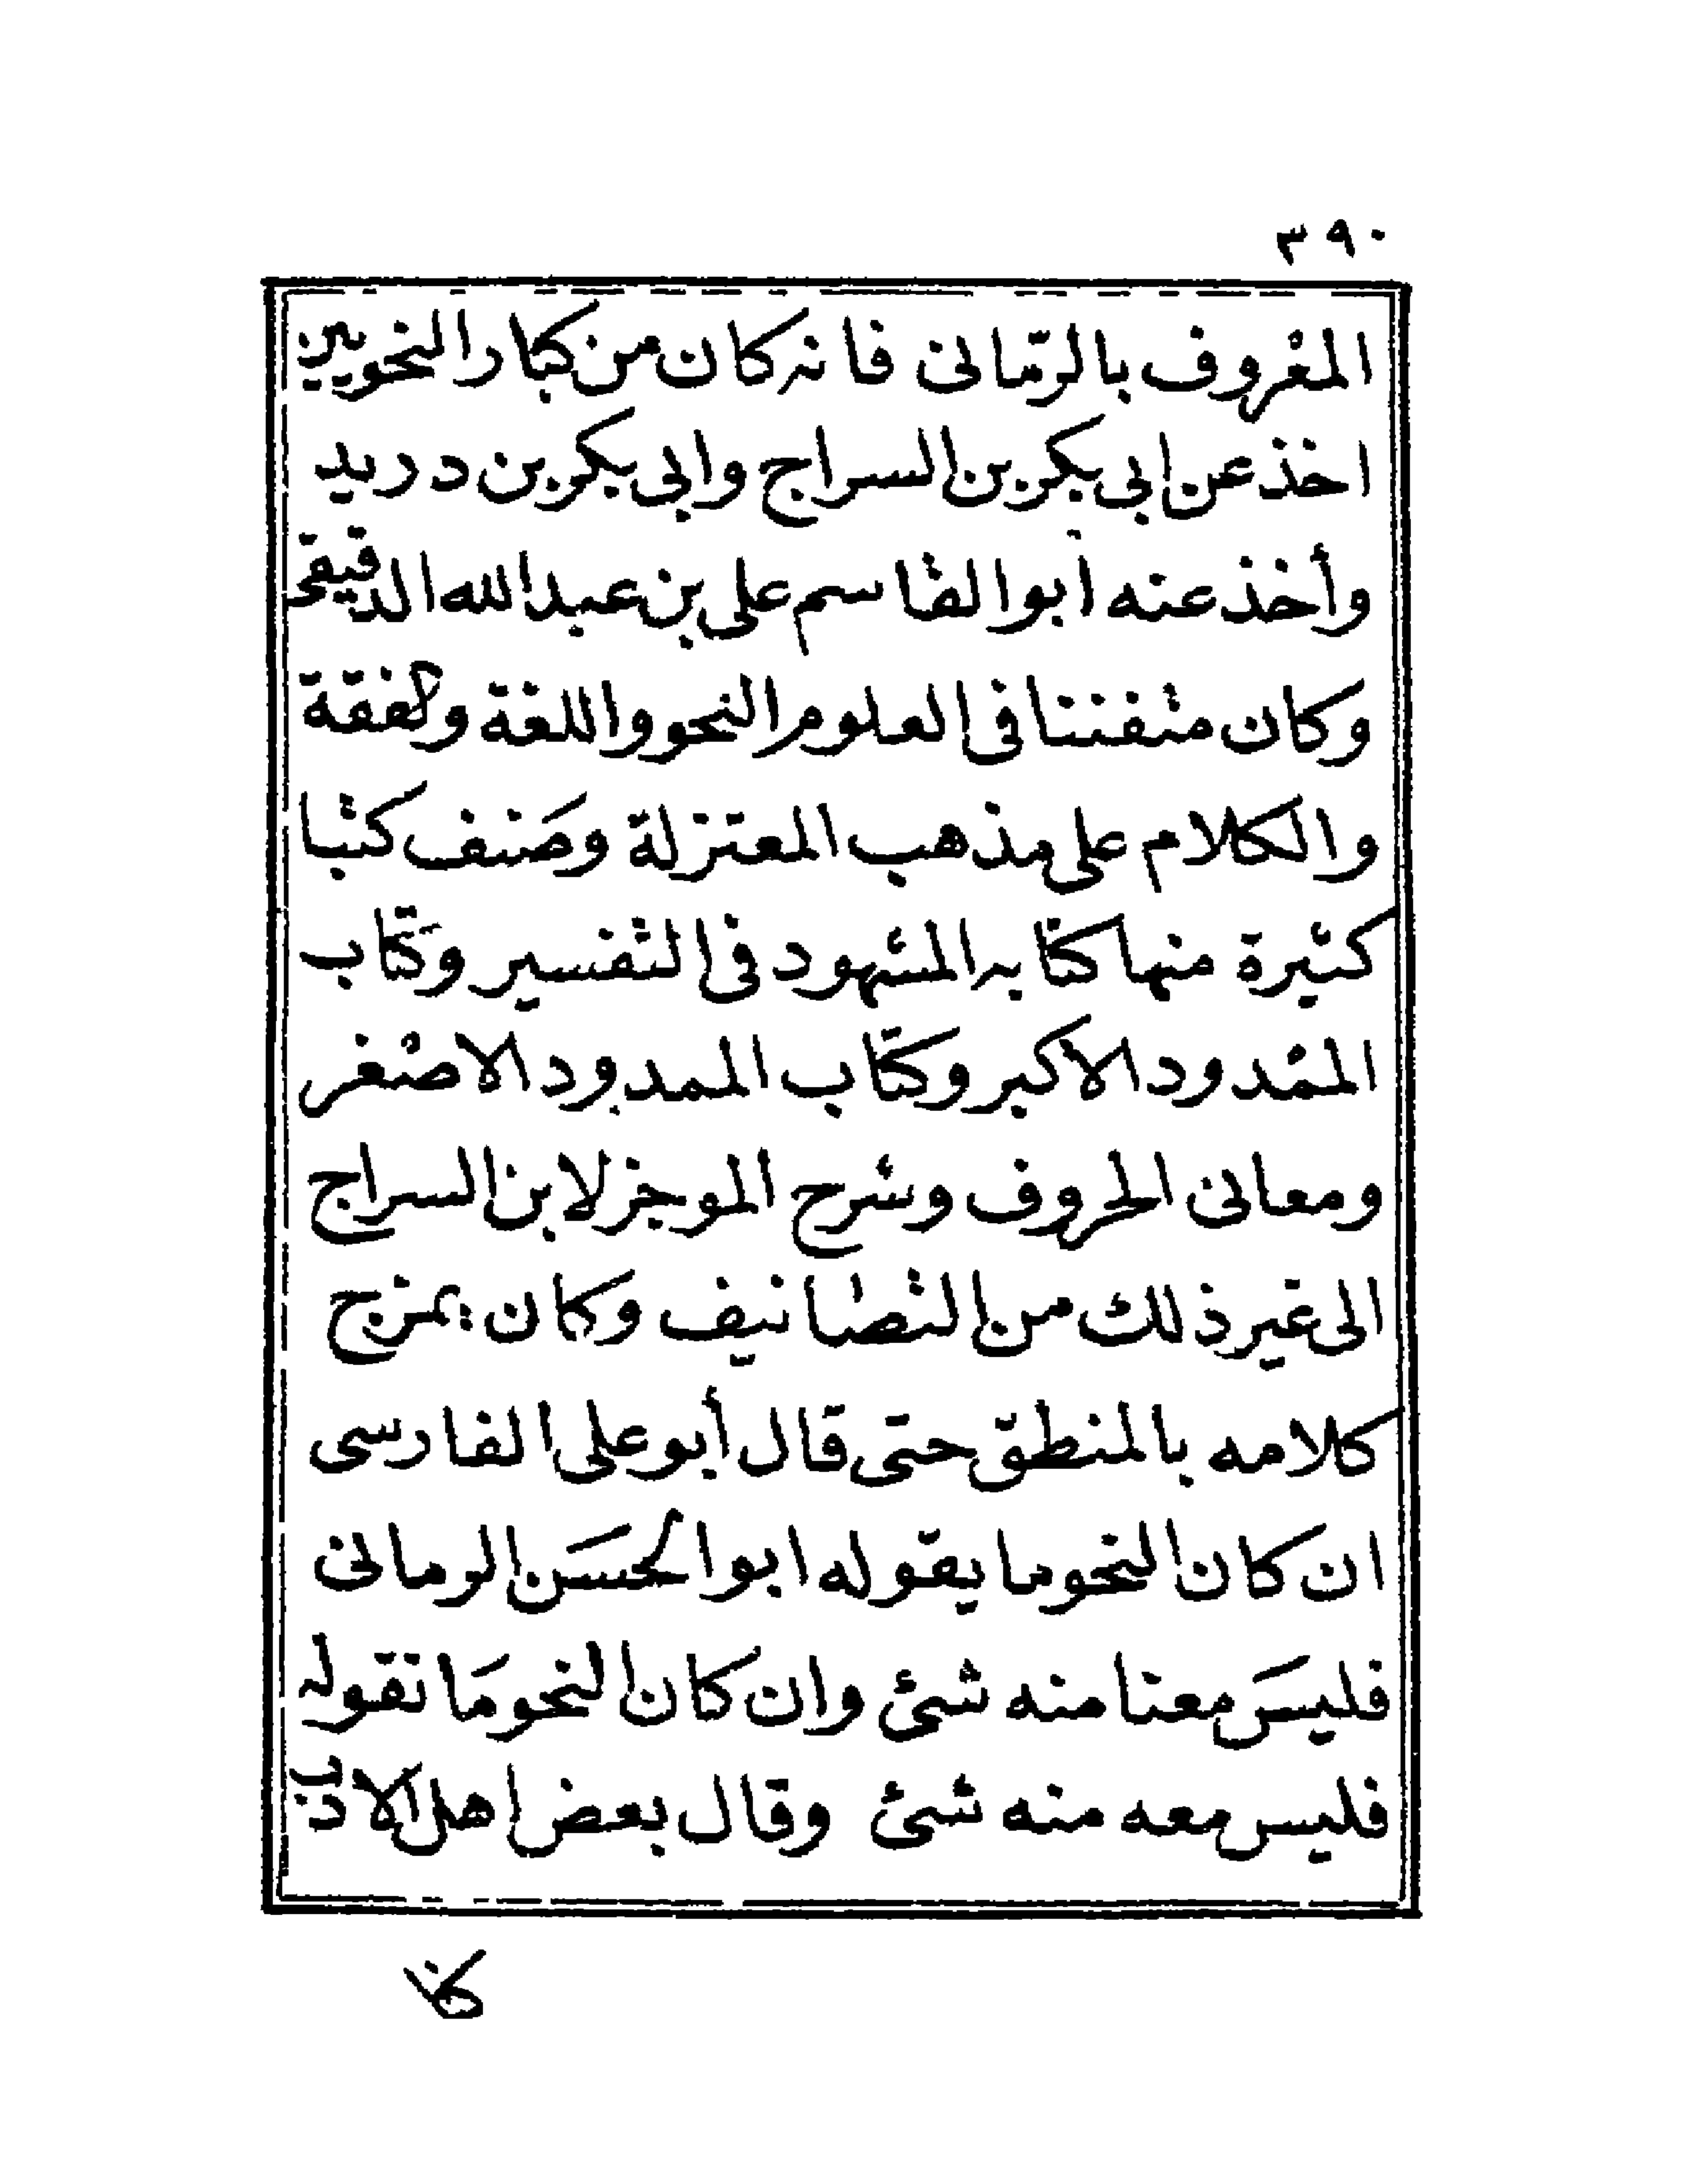 ٣٩٠
المعْروف بالرّمانى فانه كان من كبار النحويين
اخذ عن ابى بكر بن السراج وابى بكر بن دريد
وأخذ عنه أبو القاسم على بن عبد الله الدقيقى
وكان متفننا فى العلوم النحو واللغة والفقة
والكلام على مذهب المعتزلة وصَنف كتبا
كثيرة منها كتابه المشهود فى التفسير وكتاب
الممْدود الاكبر وكتاب الممدود الاصْغر
ومعانى الحروف وشرح الموجز لابن السراج
الى غير ذلك من التصانيف وكان يمزج
كلامه بالمنطق حتى قال أبو على الفارسى
ان كان النحو ما يقوله ابو الحسَن الرمانى
فليسَ معنا منه شئ وان كان النحو مَا نقوله
فليس معه منه شئ وقال بعض اهل الادب
كنا